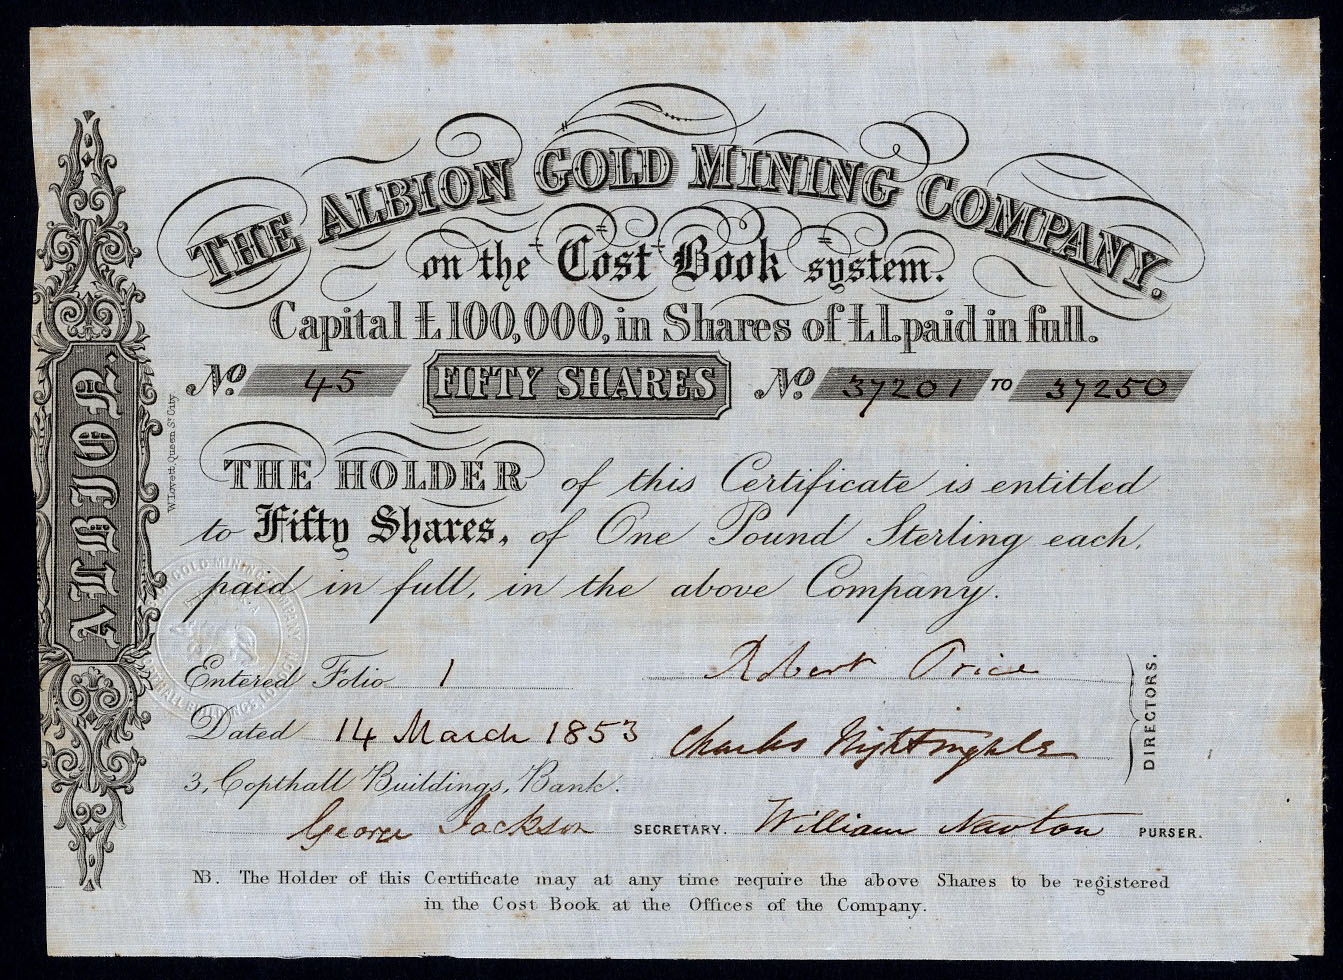 THE ALBION GOLD MINING COMPANY.
on the Cost Book system.
Capital £100,000, in Shares of £1. paid in full.
No. 45 FIFTY SHARES No. 37201 TO 37250
THE HOLDER of this Certificate is entitled
to Fifty Shares, of One Pound Sterling each,
paid in full, in the above Company.
Entered Folio 1
Robert Price
Dated 14 March 1853
Charles Nightingale
DIRECTORS.
3, Copthall Buildings, Bank.
George Jackson SECRETARY. William Newton PURSER.
NB. The Holder of this Certificate may at any time require the above Shares to be registered
in the Cost Book at the Offices of the Company.
ALBION
W. Lovett, Queen St. City
GOLD MINING COMPANY